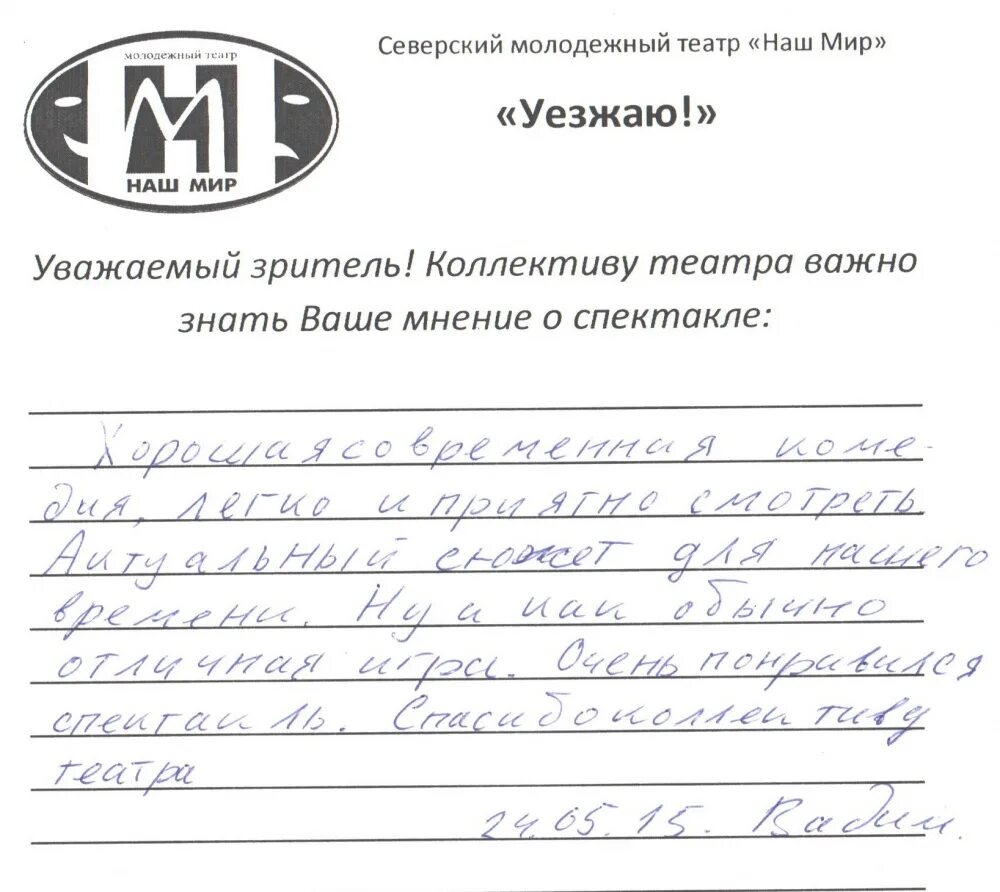 молодежный театр
НАШ МИР
Северский молодежный театр «Наш Мир»
«Уезжаю!»
Уважаемый зритель! Коллективу театра важно
знать Ваше мнение о спектакле:
Хорошая современная коме-
дия, легко и приятно смотреть.
Актуальный сюжет для нашего
времени. Ну и как обычно
отличная игра. Очень понравился
спектакль. Спасибо коллективу
театра
24.05.15. Вадим.